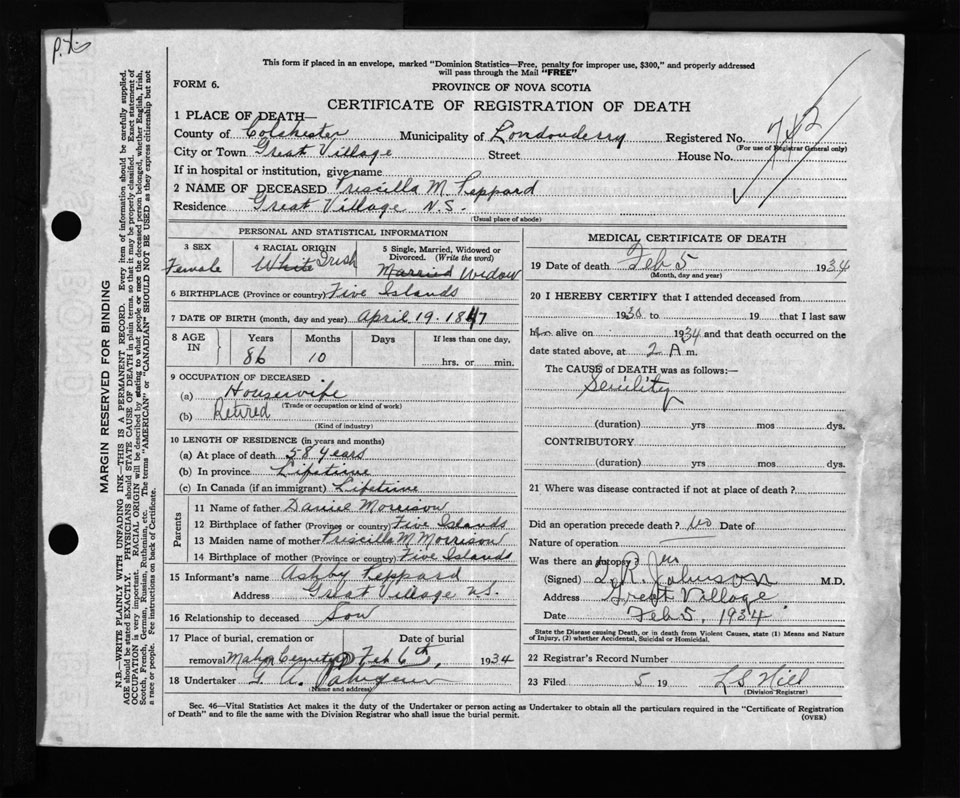 This form if placed in an envelope, marked "Dominion Statistics—Free, penalty for improper use, $300," and properly addressed
will pass through the Mail "FREE"
FORM 6.
PROVINCE OF NOVA SCOTIA
CERTIFICATE OF REGISTRATION OF DEATH
1 PLACE OF DEATH—
County of Colchester Municipality of Londonderry Registered No. 742
(For use of Registrar General only)
City or Town Great Village Street House No.
If in hospital or institution, give name
2 NAME OF DECEASED Priscilla M. Peppard
Residence Great Village N.S.
(Usual place of abode)
PERSONAL AND STATISTICAL INFORMATION
3 SEX
Female
4 RACIAL ORIGIN
White Irish
5 Single, Married, Widowed or Divorced. (Write the word)
Married Widow
6 BIRTHPLACE (Province or country) Five Islands
7 DATE OF BIRTH (month, day and year) April 19. 1847
8 AGE IN
Years Months Days If less than one day,
86 10 hrs. or min.
9 OCCUPATION OF DECEASED
(a) Housewife
(Trade or occupation or kind of work)
(b) Retired
(Kind of industry)
10 LENGTH OF RESIDENCE (in years and months)
(a) At place of death 58 years
(b) In province Lifetime
(c) In Canada (if an immigrant) Lifetime
Parents
11 Name of father Daniel Morrison
12 Birthplace of father (Province or country) Five Islands
13 Maiden name of mother Priscilla M Morrison
14 Birthplace of mother (Province or country) Five Islands
15 Informant's name Ashby Peppard
Address Great Village N.S.
16 Relationship to deceased Son
17 Place of burial, cremation or Date of burial
removal Mahon Cemetery Feb 6th, 1934
18 Undertaker G. A.
(Name and address)
MEDICAL CERTIFICATE OF DEATH
19 Date of death Feb 5 1934
(Month, day and year)
20 I HEREBY CERTIFY that I attended deceased from
1930 to 19 that I last saw
h alive on 1934 and that death occurred on
date stated above, at 2 A m.
The CAUSE of DEATH was as follows:—
Senility
(duration) yrs mos dys.
CONTRIBUTORY
(duration) yrs mos dys.
21 Where was disease contracted if not at place of death?
Did an operation precede death? no Date of
Nature of operation
Was there an autopsy? no
(Signed) L. R. Johnson M.D.
Address Great Village
Date Feb 5, 1934.
State the Disease causing Death, or in death from Violent Causes, state (1) Means and Nature
of Injury, (2) whether Accidental, Suicidal or Homicidal.
22 Registrar's Record Number
23 Filed 5 19 L S Hill
(Division Registrar)
Sec. 46—Vital Statistics Act makes it the duty of the Undertaker or person acting as Undertaker to obtain all the particulars required in the "Certificate of Registration
of Death" and to file the same with the Division Registrar who shall issue the burial permit. (OVER)
MARGIN RESERVED FOR BINDING
N.B.—WRITE PLAINLY WITH UNFADING INK—THIS IS A PERMANENT RECORD. Every item of information should be carefully supplied.
AGE should be stated EXACTLY. PHYSICIANS should STATE CAUSE OF DEATH in plain terms, so that it may be properly classified. Exact statement of
OCCUPATION is very important. RACIAL ORIGIN will be described by stating to what people or race the deceased person belonged, whether English, Irish,
Scotch, French, German, Russian, Ruthenian, etc. The terms "AMERICAN" or "CANADIAN" SHOULD NOT BE USED as they express citizenship but not
a race or people. See instructions on back of Certificate.